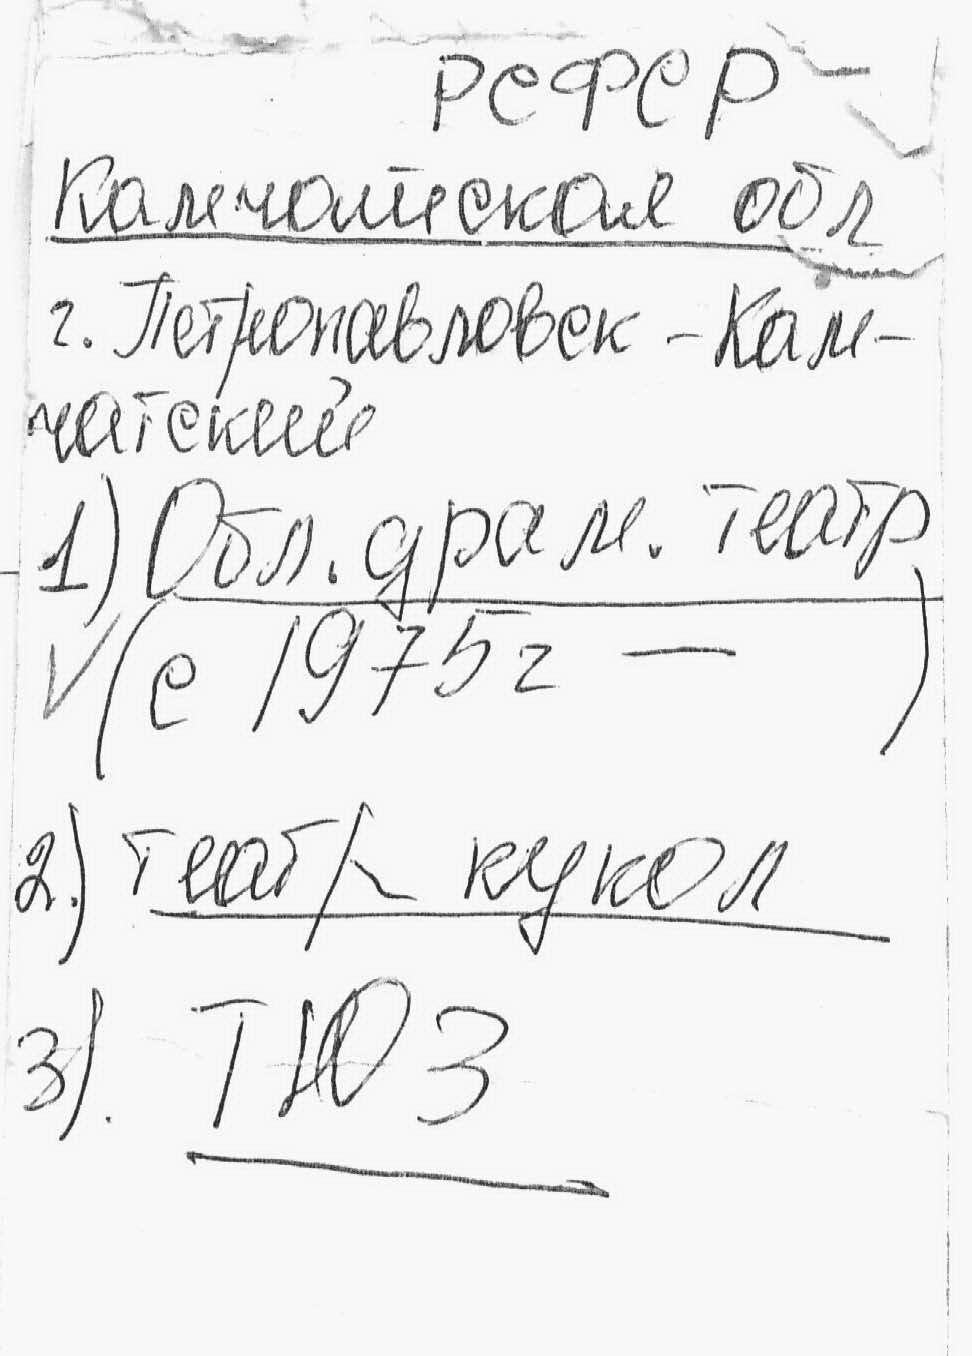 РСФСР
Камчатская обл
г. Петропавловск-Кам-
чатский
1) Обл. драм. театр
(с 1975г — )
2.) театр кукол
3). ТЮЗ